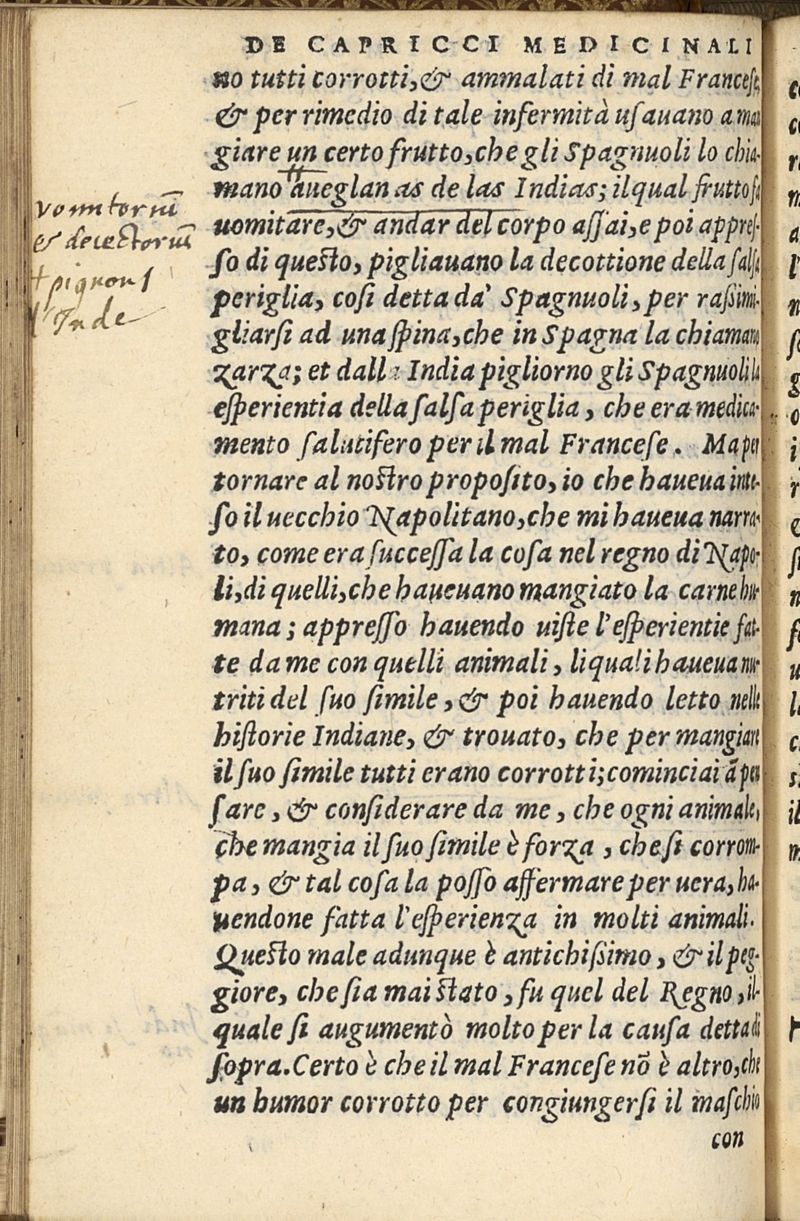 DE CAPRICCI MEDICINALI
no tutti corrotti, & ammalati di mal Franceſe,
& per rimedio di tale infermità uſauano a man
giare un certo frutto, che gli Spagnuoli lo chia-
mano aueglanas de las Indias; ilqual frutto fa
uomitare, & andar del corpo aſſai, e poi appreſ-
ſo di queſto, pigliauano la decottione della ſalſa
periglia, coſi detta da' Spagnuoli, per raſsimi-
gliarſi ad una ſpina, che in Spagna la chiamano
zarza; et dall' India pigliorno gli Spagnuoli la
eſperientia della ſalſa periglia, che era medica-
mento ſalutifero per il mal Franceſe. Ma per
tornare al noſtro propoſito, io che haueua inte-
ſo il uecchio Napolitano, che mi haueua narra-
to, come era ſucceſſa la coſa nel regno di Napo-
li, di quelli, che haueuano mangiato la carne hu-
mana; appreſſo hauendo uiſte l'eſperientie fat-
te da me con quelli animali, liquali haueua nu-
triti del ſuo ſimile, & poi hauendo letto nelle
hiſtorie Indiane, & trouato, che per mangiare
il ſuo ſimile tutti erano corrotti; cominciai à pen
ſare, & conſiderare da me, che ogni animale,
che mangia il ſuo ſimile è forza, che ſi corrom-
pa, & tal coſa la poſſo affermare per uera, ha-
uendone fatta l'eſperienza in molti animali.
Queſto male adunque è antichiſsimo, & il peg-
giore, che ſia mai ſtato, fu quel del Regno, il-
quale ſi augumentò molto per la cauſa detta di
ſopra. Certo è che il mal Franceſe nõ è altro, che
un humor corrotto per congiungerſi il maſchio
con
vomitoriũ
& deiectoriũ
+ pignons
d'Inde